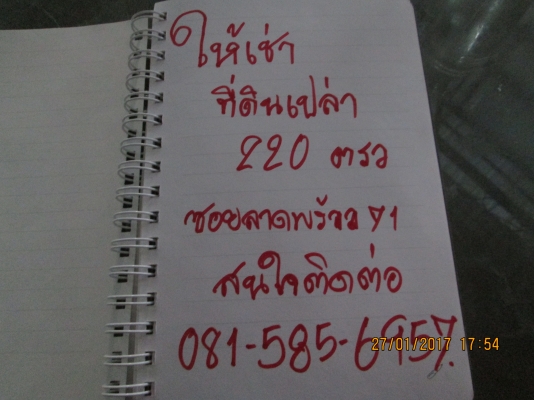 ให้เช่า
ที่ดินเปล่า
220 ตรว
ซอยลาดพร้าว 71
สนใจติดต่อ
081-585-6957.
27/01/2017 17:54